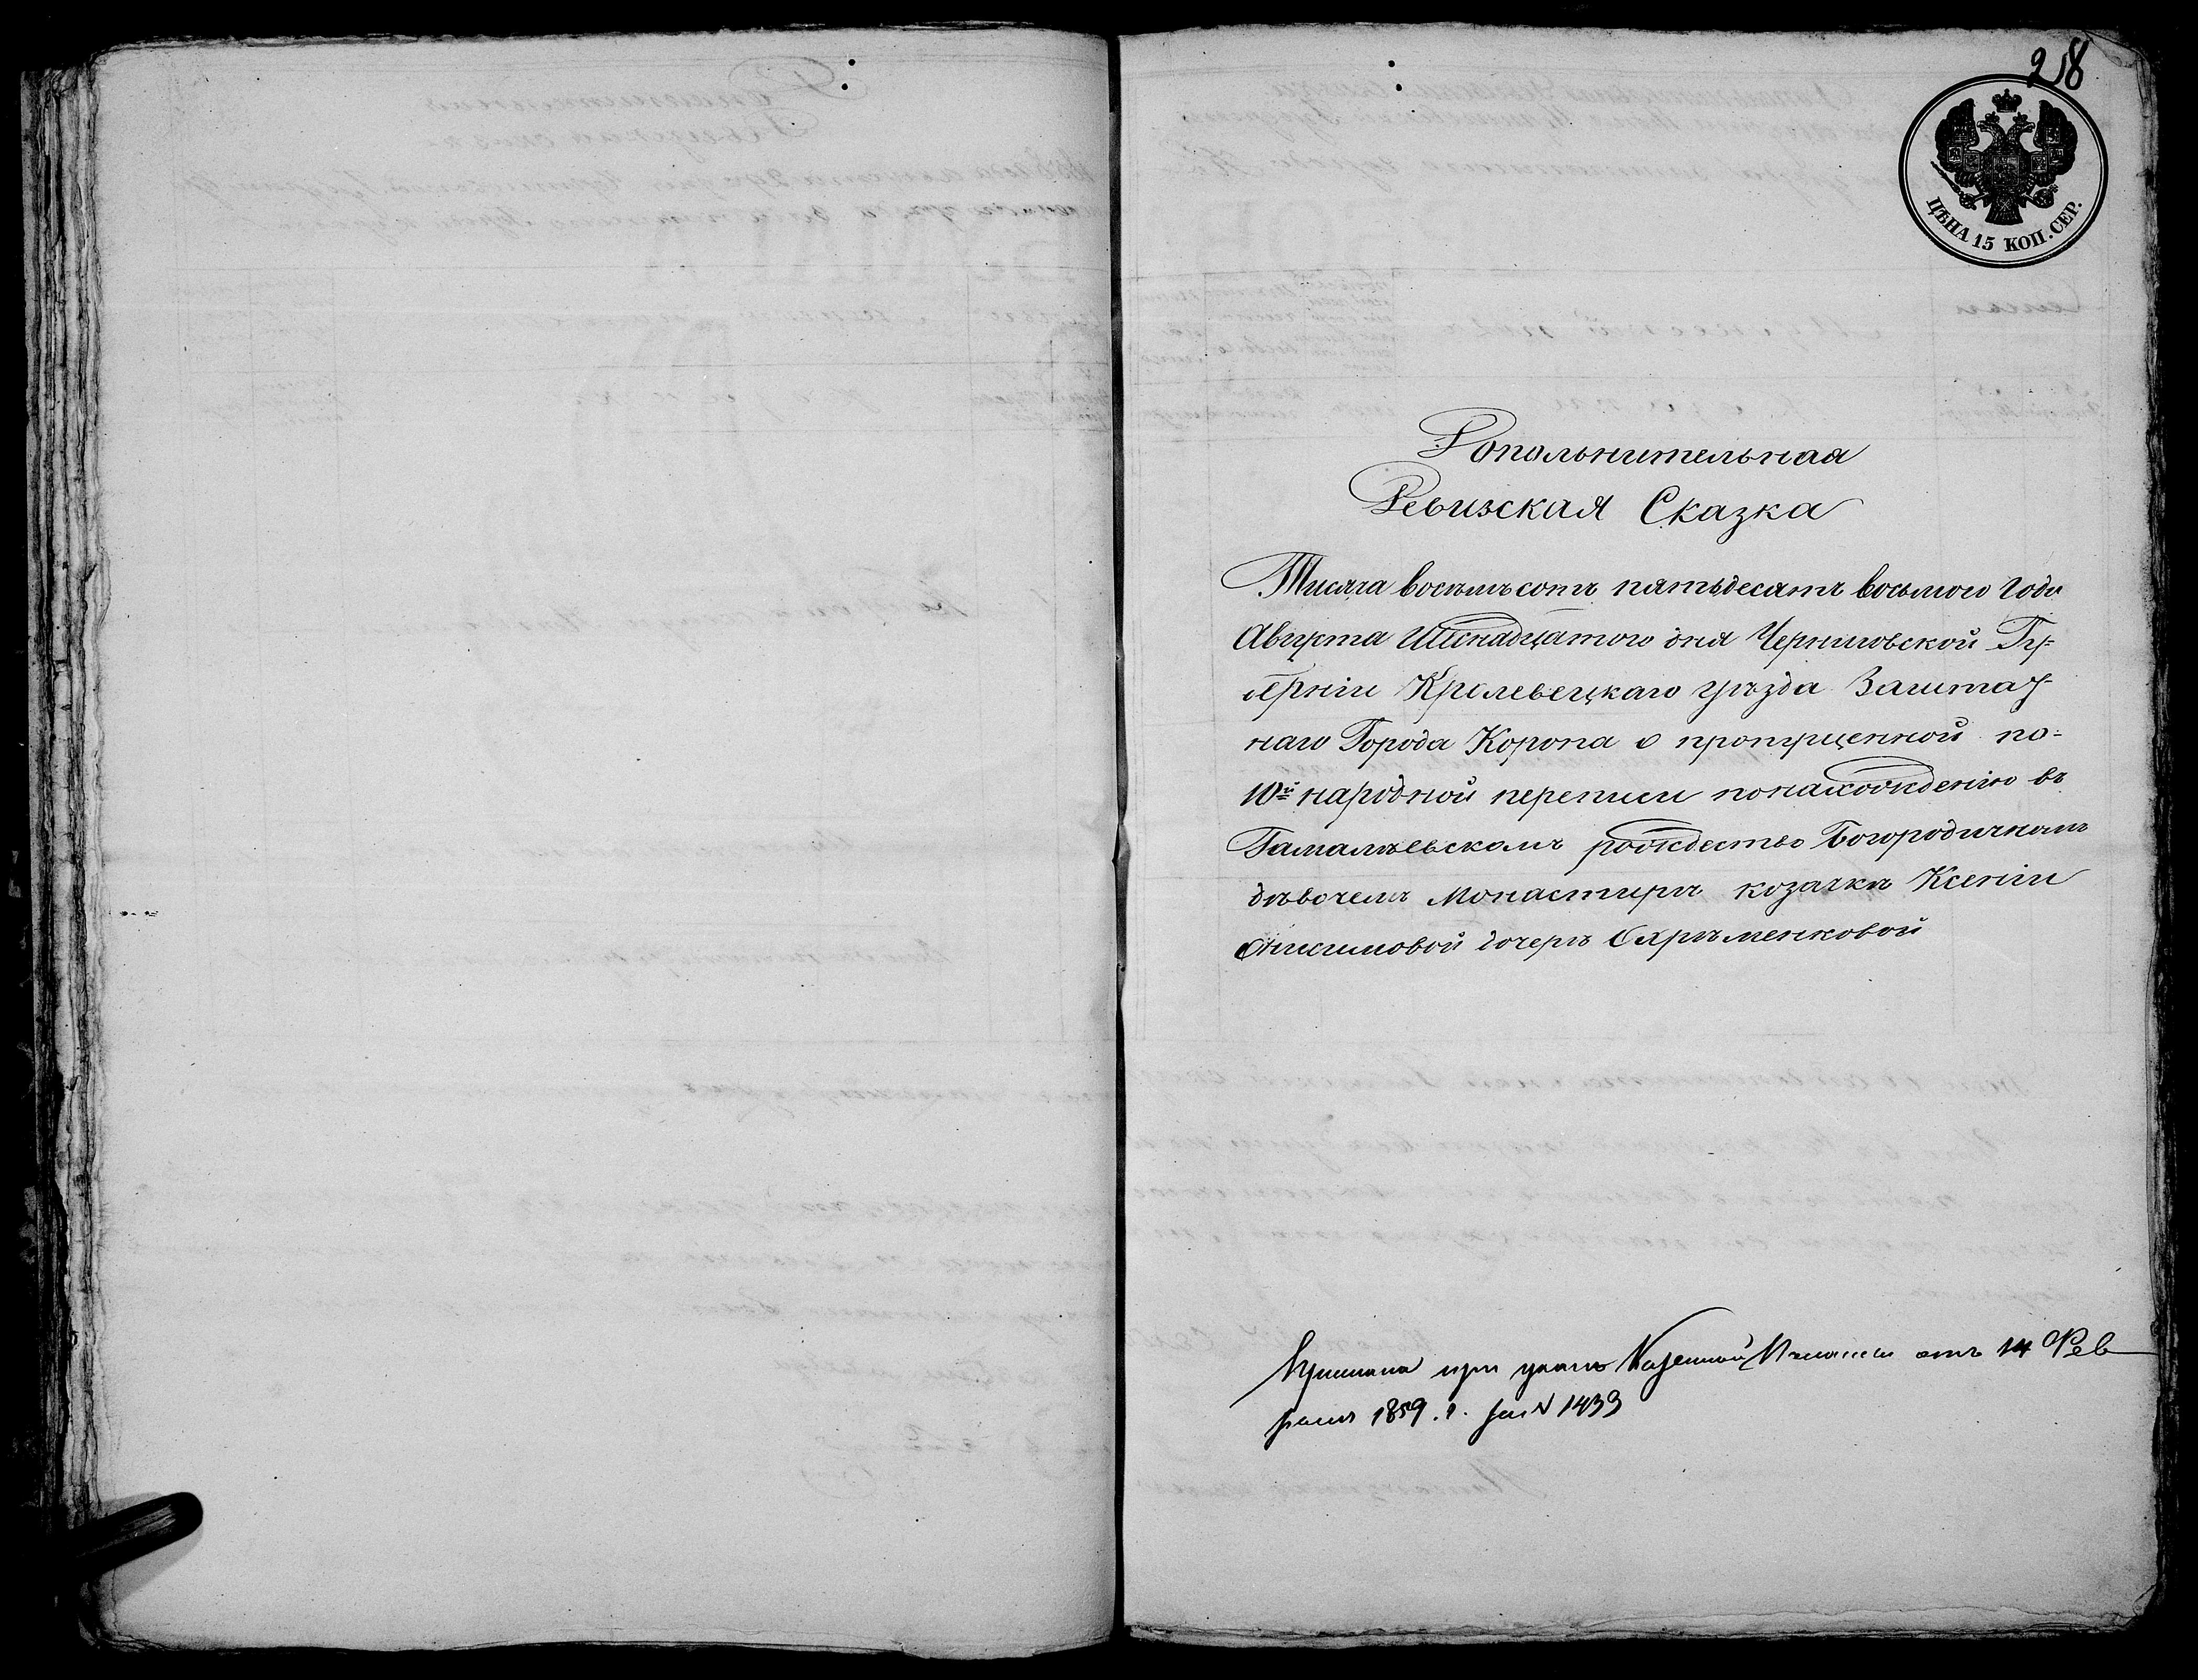 218
ЦѢНА 15 КОП. СЕР.
Дополнительная
Ревизская Сказка
Тисяча восемъсотъ пятьдесятъ восьмого года
Августа Шеснадцатого дня Черниговской Гу-
берніи Кролевецкаго уѣзда Заштат-
наго Города Коропа о пропущенной по-
10й народной переписи понахожденію въ
Гамалѣевскомъ рождество Богородичномъ
дѣвочемъ Монастирѣ козачкѣ Ксеніи
Онисимовой дочерѣ Охрѣменковой
при указѣ Казенной Палаты отъ 14 Фев
раля 1859 г. за № 1433